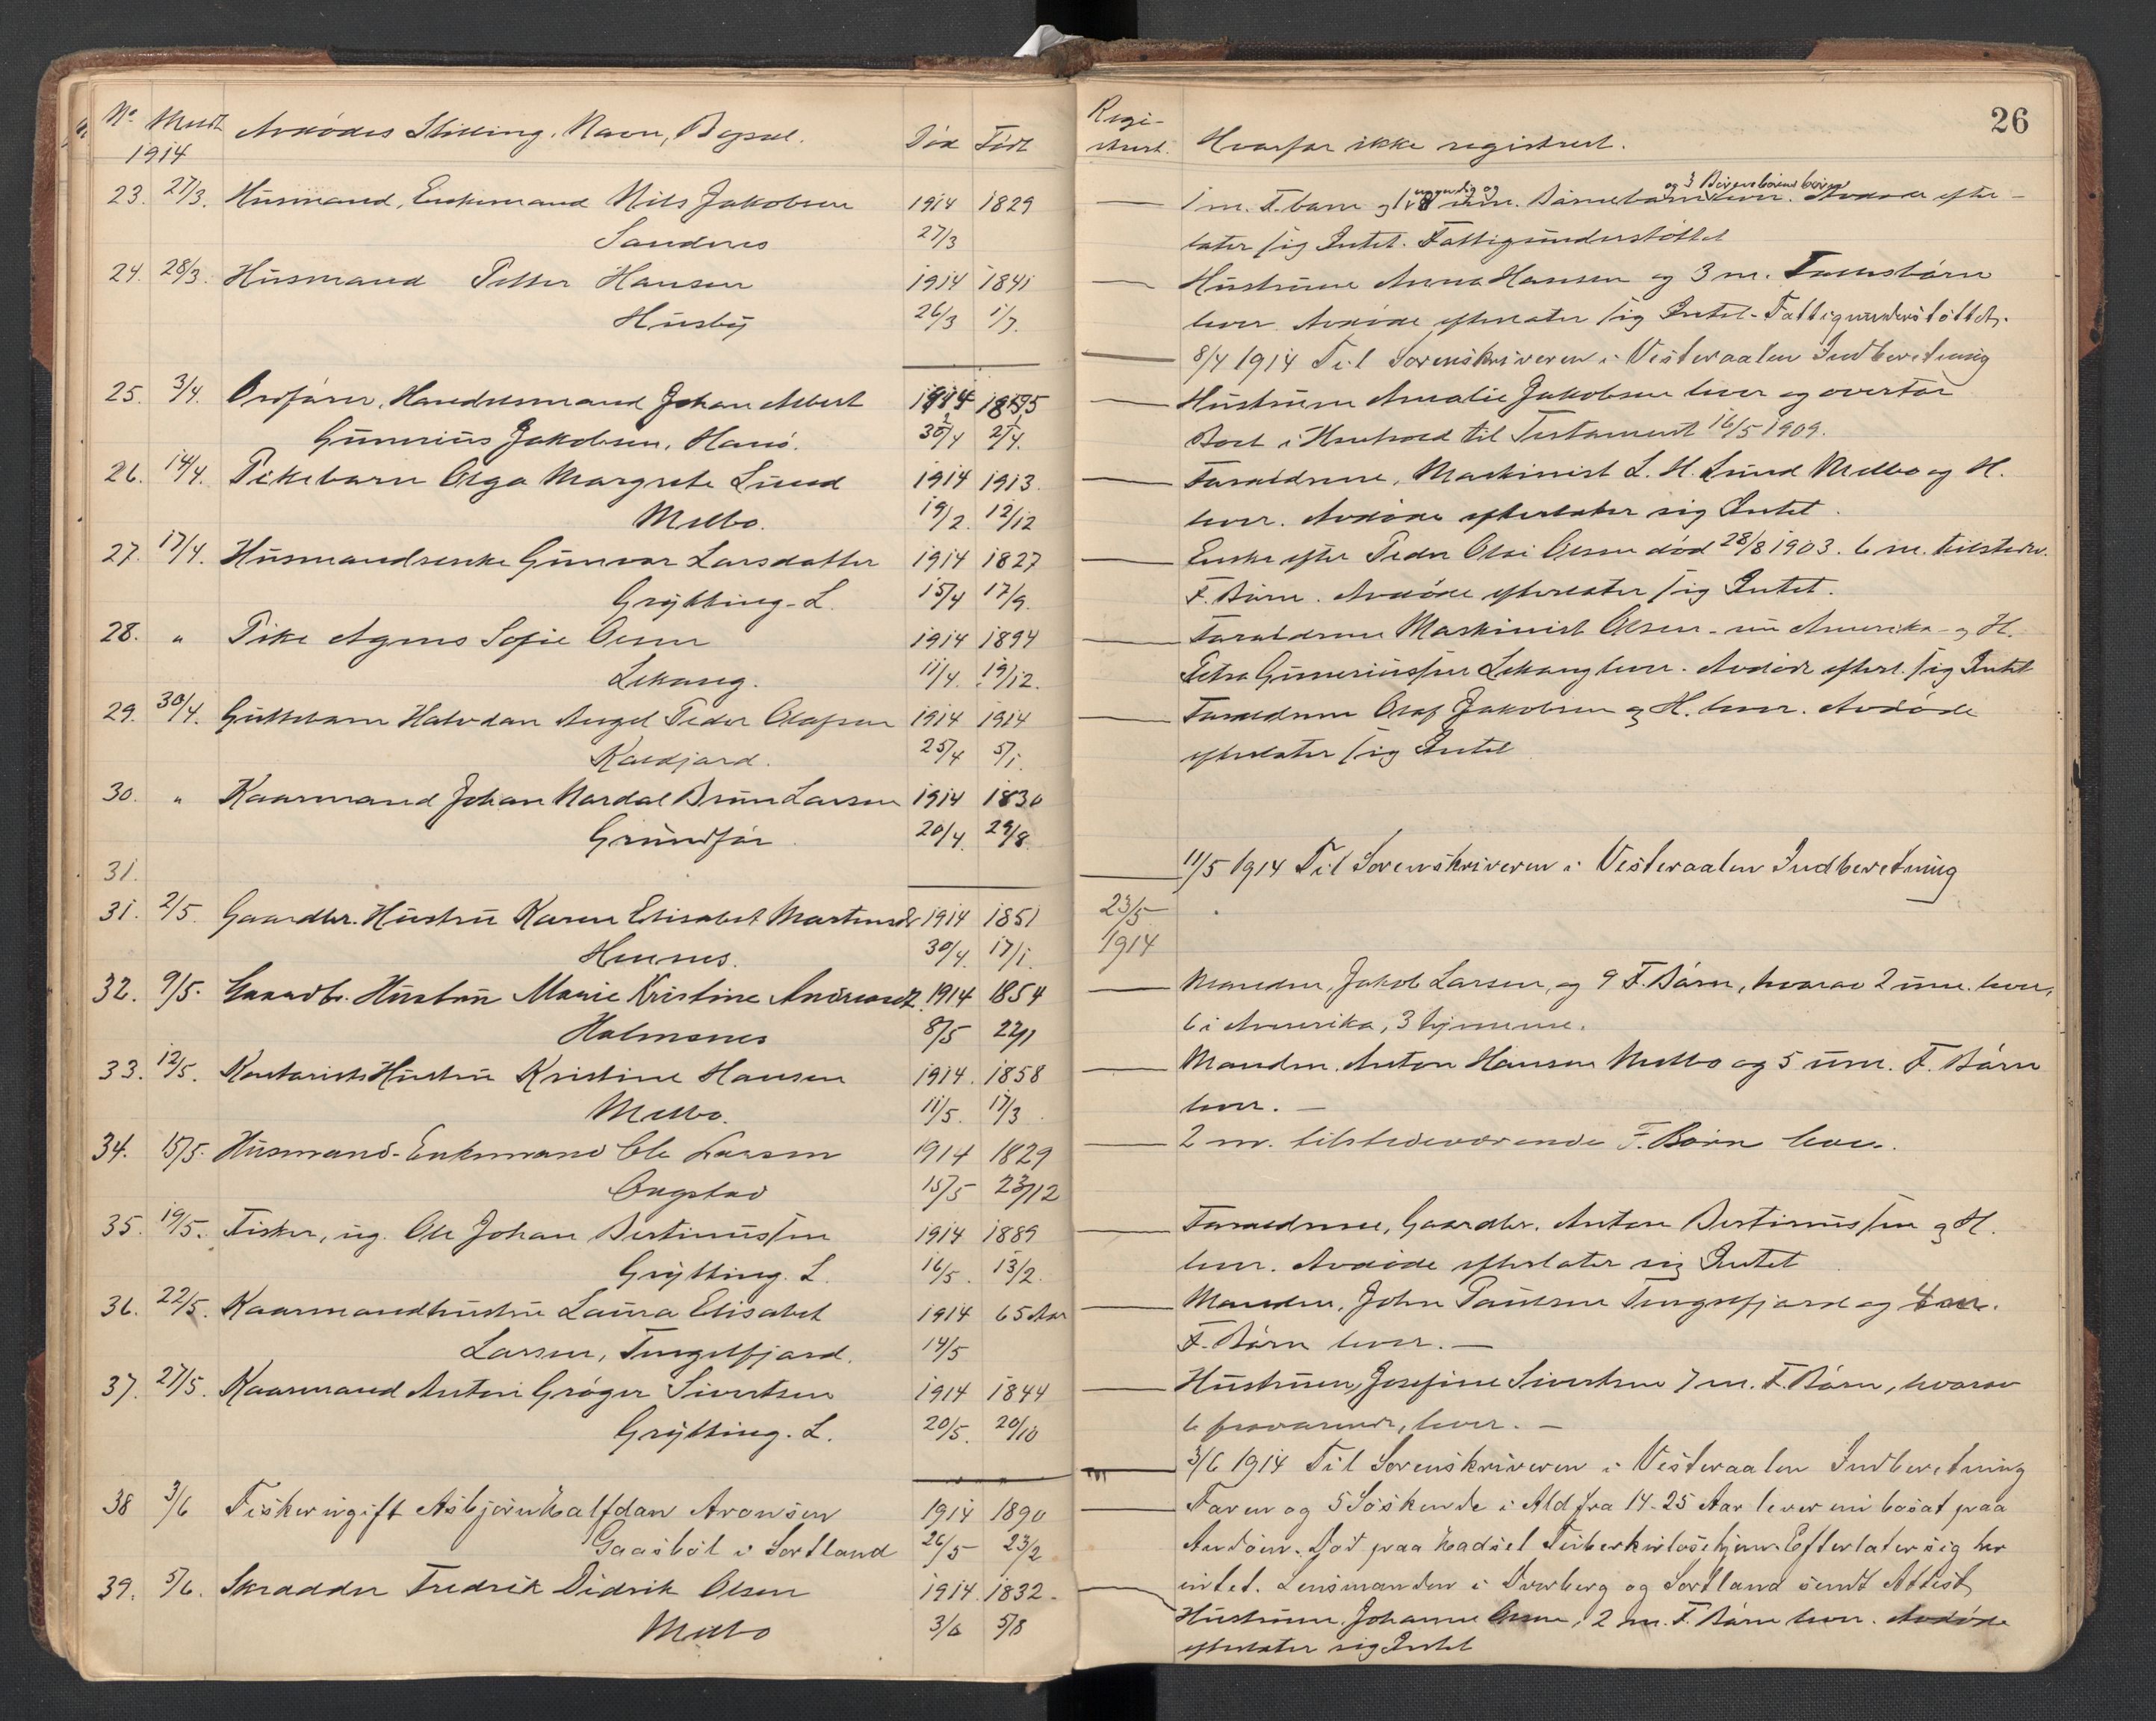 26
No Meldt Avdødes Stilling, Navn, Bopæl. Død Født
1914
Regi-
strert. Hvorfor ikke registrert.
23. 27/3. Husmand, Enkemand Nils Jakobsen 1914 1829
Sandnes 27/3
24. 28/3. Husmand Petter Hansen 1914 1841
Husby 26/3 1/7.
25. 3/4. Opsjøner, Handelsmand Johan Albert 1914 1835
Gunerius Jakobsen, Hanø. 2/4.
26. 14/4. Pikebarn Olga Margrete Lund 1914 1913
Melbo. 19/2. 12/12
27. 17/4. Husmandsenke Gunvor Larsdatter 1914 1827
Grytting-L. 15/4 17/9.
28. " Pike Agnes Sofie Olsen 1914 1894
Lekang. 11/4. 19/12.
29. 30/4. Guttebarn Halvdan Angel Peder Olafsen 1914 1914
Kaldjord. 25/4 5/1.
30. " Kaarmand Johan Nordal Brun Larsen 1914 1830
Grundfør 20/4. 29/8.
31.
31. 2/5. Gaardbr. Hustru Karen Elisabet Martinsd. 1914 1851
Hennes. 30/4. 17/1.
32. 9/5. Gaardbr. Hustru Marie Kristine Andreasd. 1914 1854
Holmsnes 8/5 22/1
33. 12/5. Kontorists Hustru Kristine Hansen 1914. 1858
Melbo. 11/5. 17/3.
34. 15/5. Husmand-Enkemand Ole Larsen 1914 1829
Ongstad 15/5 23/12
35. 19/5. Fisker, ug. Ole Johan Bertinussen 1914 1889
Grytting. L. 16/5. 13/2.
36. 22/5. Kaarmandhustru Laura Elisabet 1914 65 Aar
Larsen, Tengelfjord. 14/5
37. 27/5. Kaarmand Anton Grøger Sivertsen 1914 1844
Grytting. L. 20/5. 20/10
38 3/6 Fisker ugift Asbjørn Halfdan Aronsen 1914 1890
Gaasbøl i Sortland 26/5 23/2
39. 5/6. Skrædder Fredrik Didrik Olsen 1914. 1832.
Melbo 3/6 5/8
1 m. F. barn og 1 ugyndig og umn. Barnebarn og 3 Børnebørns børn lever. Avdøde efter-
later sig Intet. Fattigunderstøttet
Hustruen Anna Hansen og 3 m. Fællesbørn
lever. Avdøde efterlater sig Intet. Fattigunderstøttet.
8/4 1914 Til Sorenskriveren i Vesteraalen Indberetning
Hustruen Amalie Jakobsen lever og overtar
Boet i Henhold til Testament 16/5 1909.
Forældrene, Maskinist L. H. Lund Melbo og H.
lever. Avdøde efterlater sig Intet.
Enke efter Peder Olai Olsen død 28/8 1903. 6 m. tilstedev.
F. Børn. Avdøde efterlater sig Intet.
Forældrene Maskinist Olsen - nu Amerika - og H.
Petra Guneriussen Lekang lever. Avdøde efterl. sig Intet
Forældrene Olaf Jakobsen og H. lever. Avdøde
efterlater sig Intet
11/5 1914 Til Sorenskriveren i Vesteraalen Indberetning
23/5
1914
Manden, Jakob Larsen, og 9 F. Børn, hvorav 2 umn. lever,
6 i Amerika, 3 hjemme.
Manden, Anton Hansen Melbo og 5 umn. F. Børn
lever. —
2 m. tilstedeværende F. Børn lever.
Forældrene, Gaardbr. Anton Bertinussen og H.
lever. Avdøde efterlater sig Intet
Manden, John Paulsen Tengelfjord og 4 m.
F. Børn lever. —
Hustruen, Josefine Sivertsen 7 m. F. Børn, hvorav
6 fraværende, lever. —
3/6 1914 Til Sorenskriveren i Vesteraalen Indberetning
Faren og 5 Søskende i Ald fra 14-25 Aar lever nu bosat paa
Andøen. Død paa Hadsel Tuberkulosehjem. Efterlater sig her
intet. Lensmanden i Dverberg og Sortland sendt Attest
Hustruen, Johanne Olsen, 2 m. F. Børn lever. Avdøde
efterlater sig Intet